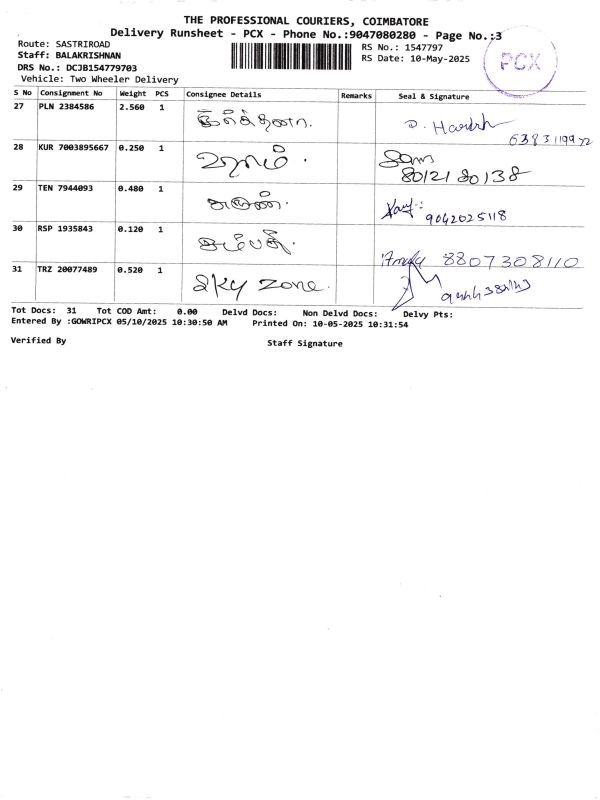 THE PROFESSIONAL COURIERS, COIMBATORE
Delivery Runsheet - PCX - Phone No.:9047080280 - Page No.:3
Route: SASTRIROAD
Staff: BALAKRISHNAN
DRS No.: DCJB154779703
Vehicle: Two Wheeler Delivery
RS No.: 1547797
RS Date: 10-May-2025
PCX
S No Consignment No Weight PCS Consignee Details Remarks Seal & Signature
27 PLN 2384586 2.560 1
6383119972
28 KUR 7003895667 0.250 1
80121 80138
29 TEN 7944093 0.480 1 அருண்.
9042025118
30 RSP 1935843 0.120 1
8807308110
31 TRZ 20077489 0.520 1 Sky zone.
Tot Docs: 31 Tot COD Amt: 0.00 Delvd Docs: Non Delvd Docs: Delvy Pts:
Entered By :GOWRIPCX 05/10/2025 10:30:50 AM Printed On: 10-05-2025 10:31:54
Verified By Staff Signature